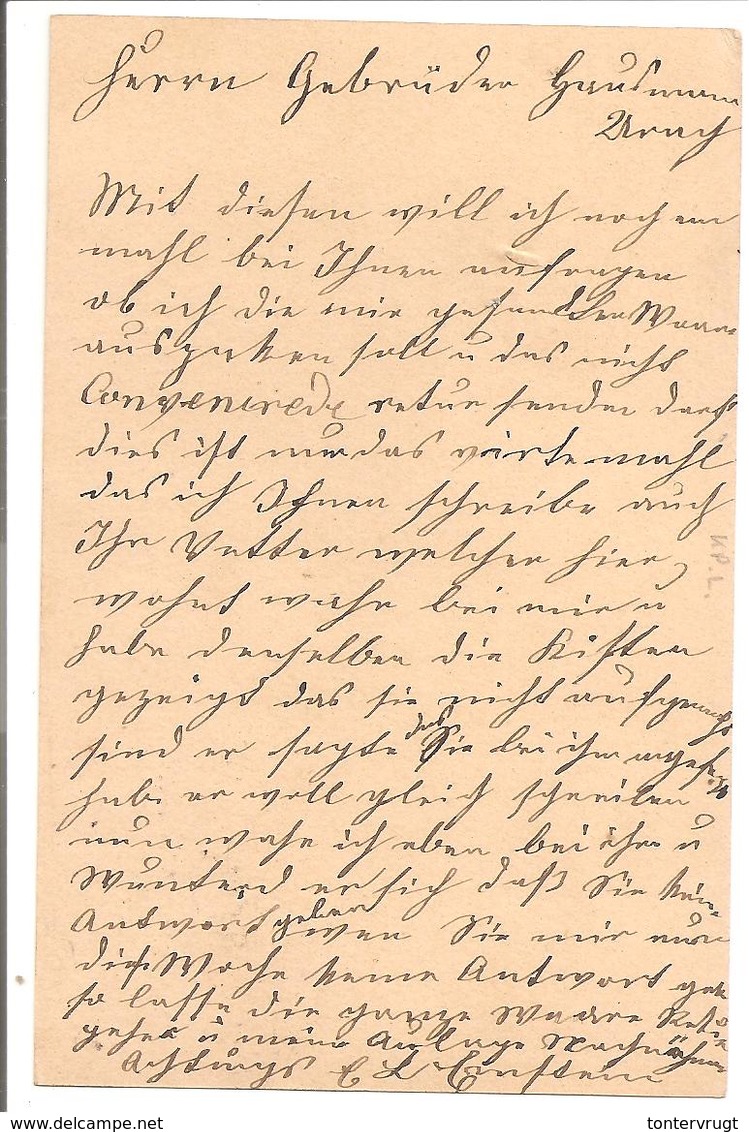 Herrn Gebrüder Hausmann
Urach
Mit diesen will ich noch ein
mahl bei Ihnen anfragen
ob ich die mir gesandten Waare
auspaken soll u das nicht
Convenierede retur senden darf
dies ist nun das vierte mahl
das ich Ihnen schreibe auch
Ihr Vetter welcher hier
wohnt wahr bei mir u
habe denselben die Kisten
gezeigt das sie nicht aufgemacht
sind er sagte das Sie bei ihm angefragt
habe er woll gleich schreiben
nun wahr ich eben bei ihm u
Wunterd er sich daß Sie kein
Antwort geben wen Sie mir nun
diese Woche keine Antwort geben
so lasse die ganze Waare Retur
gehen u meine Auslage Nachnehmen
Achtungs E L Einstein
KP.L.
tontervrugt